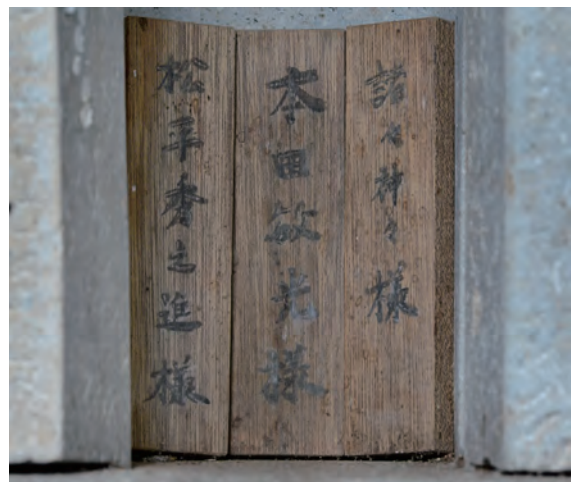 諸々神々様
本田敏光様
松平秀之進様